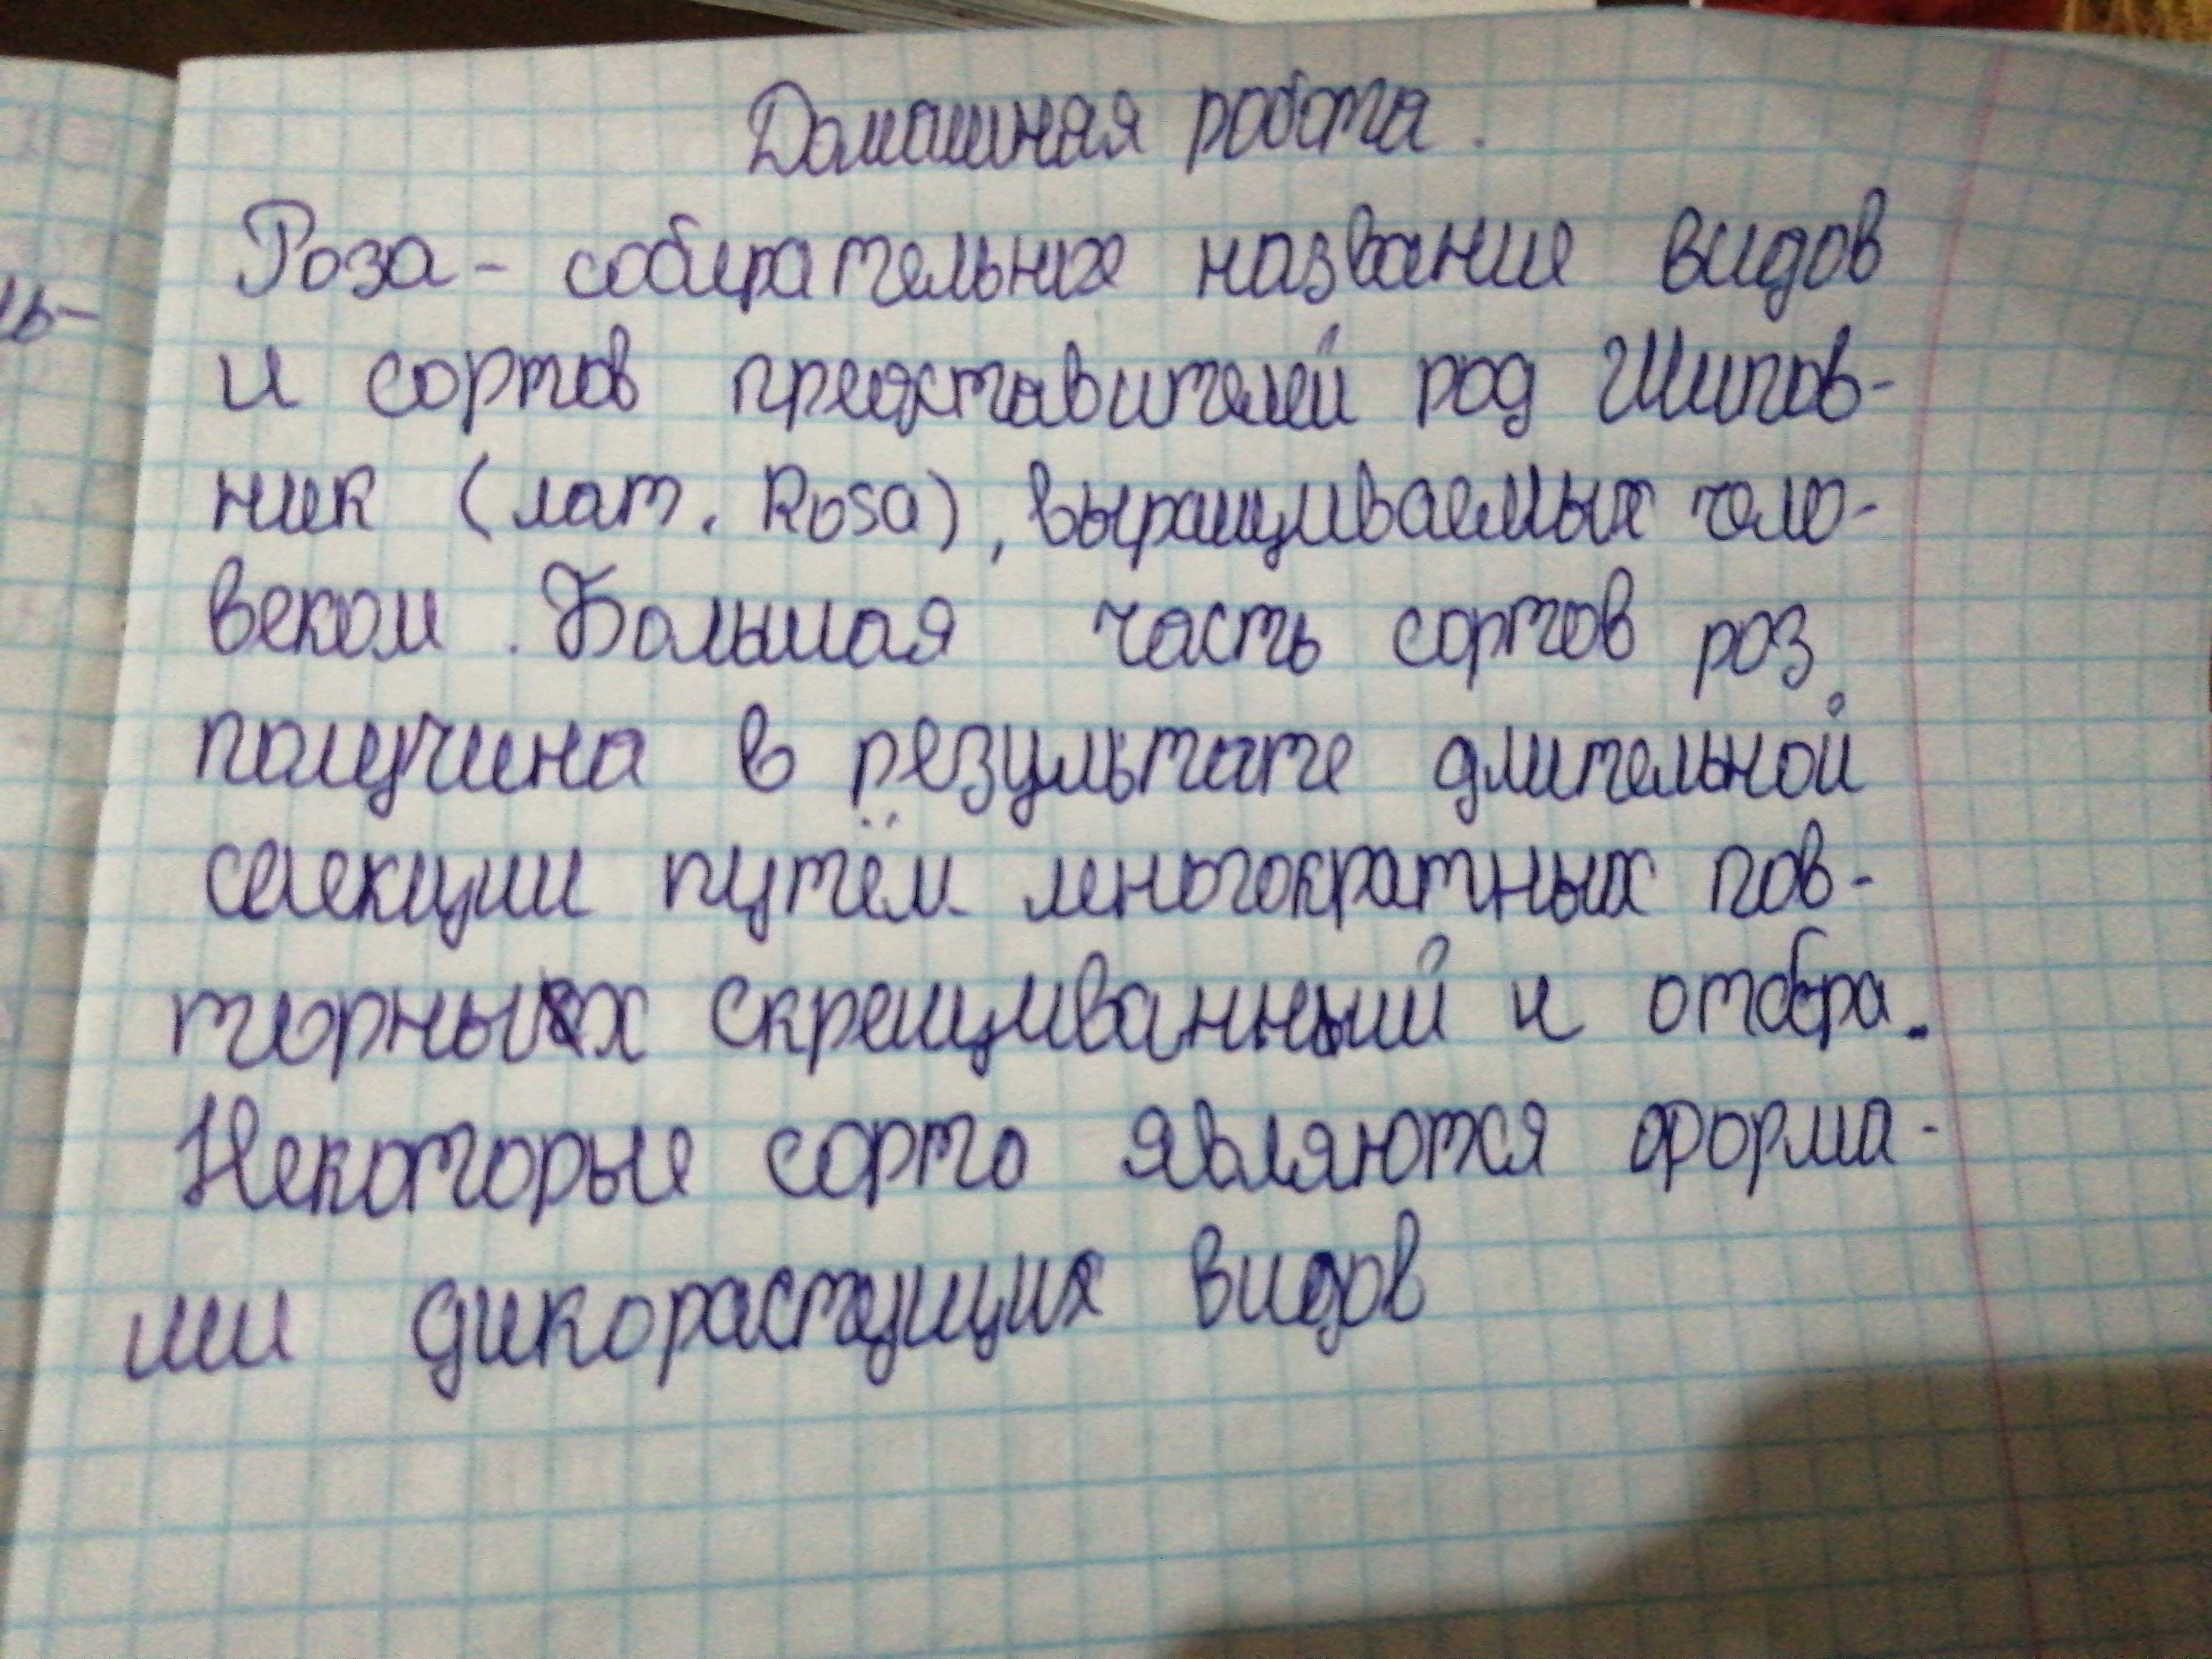 Домашная работа.
Роза - собирательное название видов
и сортов представителей род Шипов-
ник (лат. Rosa), выращиваемых чело-
веком. Большая часть сортов роз
получина в результате длительной
селекции путём многократных пов-
ь-
торных скрещиванный и отбора.
Некоторые сорта являются форма-
ми дикорастущих видов